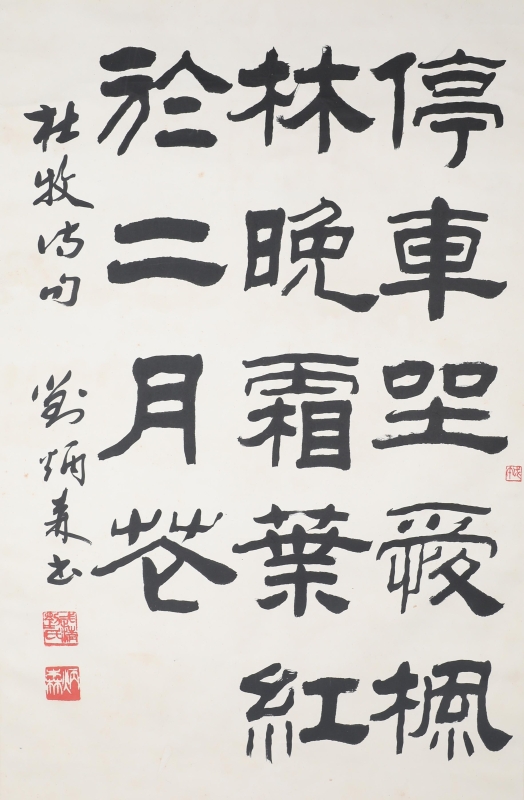 停車坐愛楓
林晚霜葉紅
於二月花
杜牧詩句 劉炳森書
劉氏
炳森